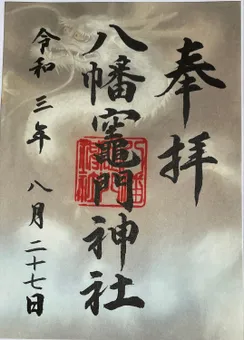 奉拝
八幡竈門神社
令和三年八月二十七日